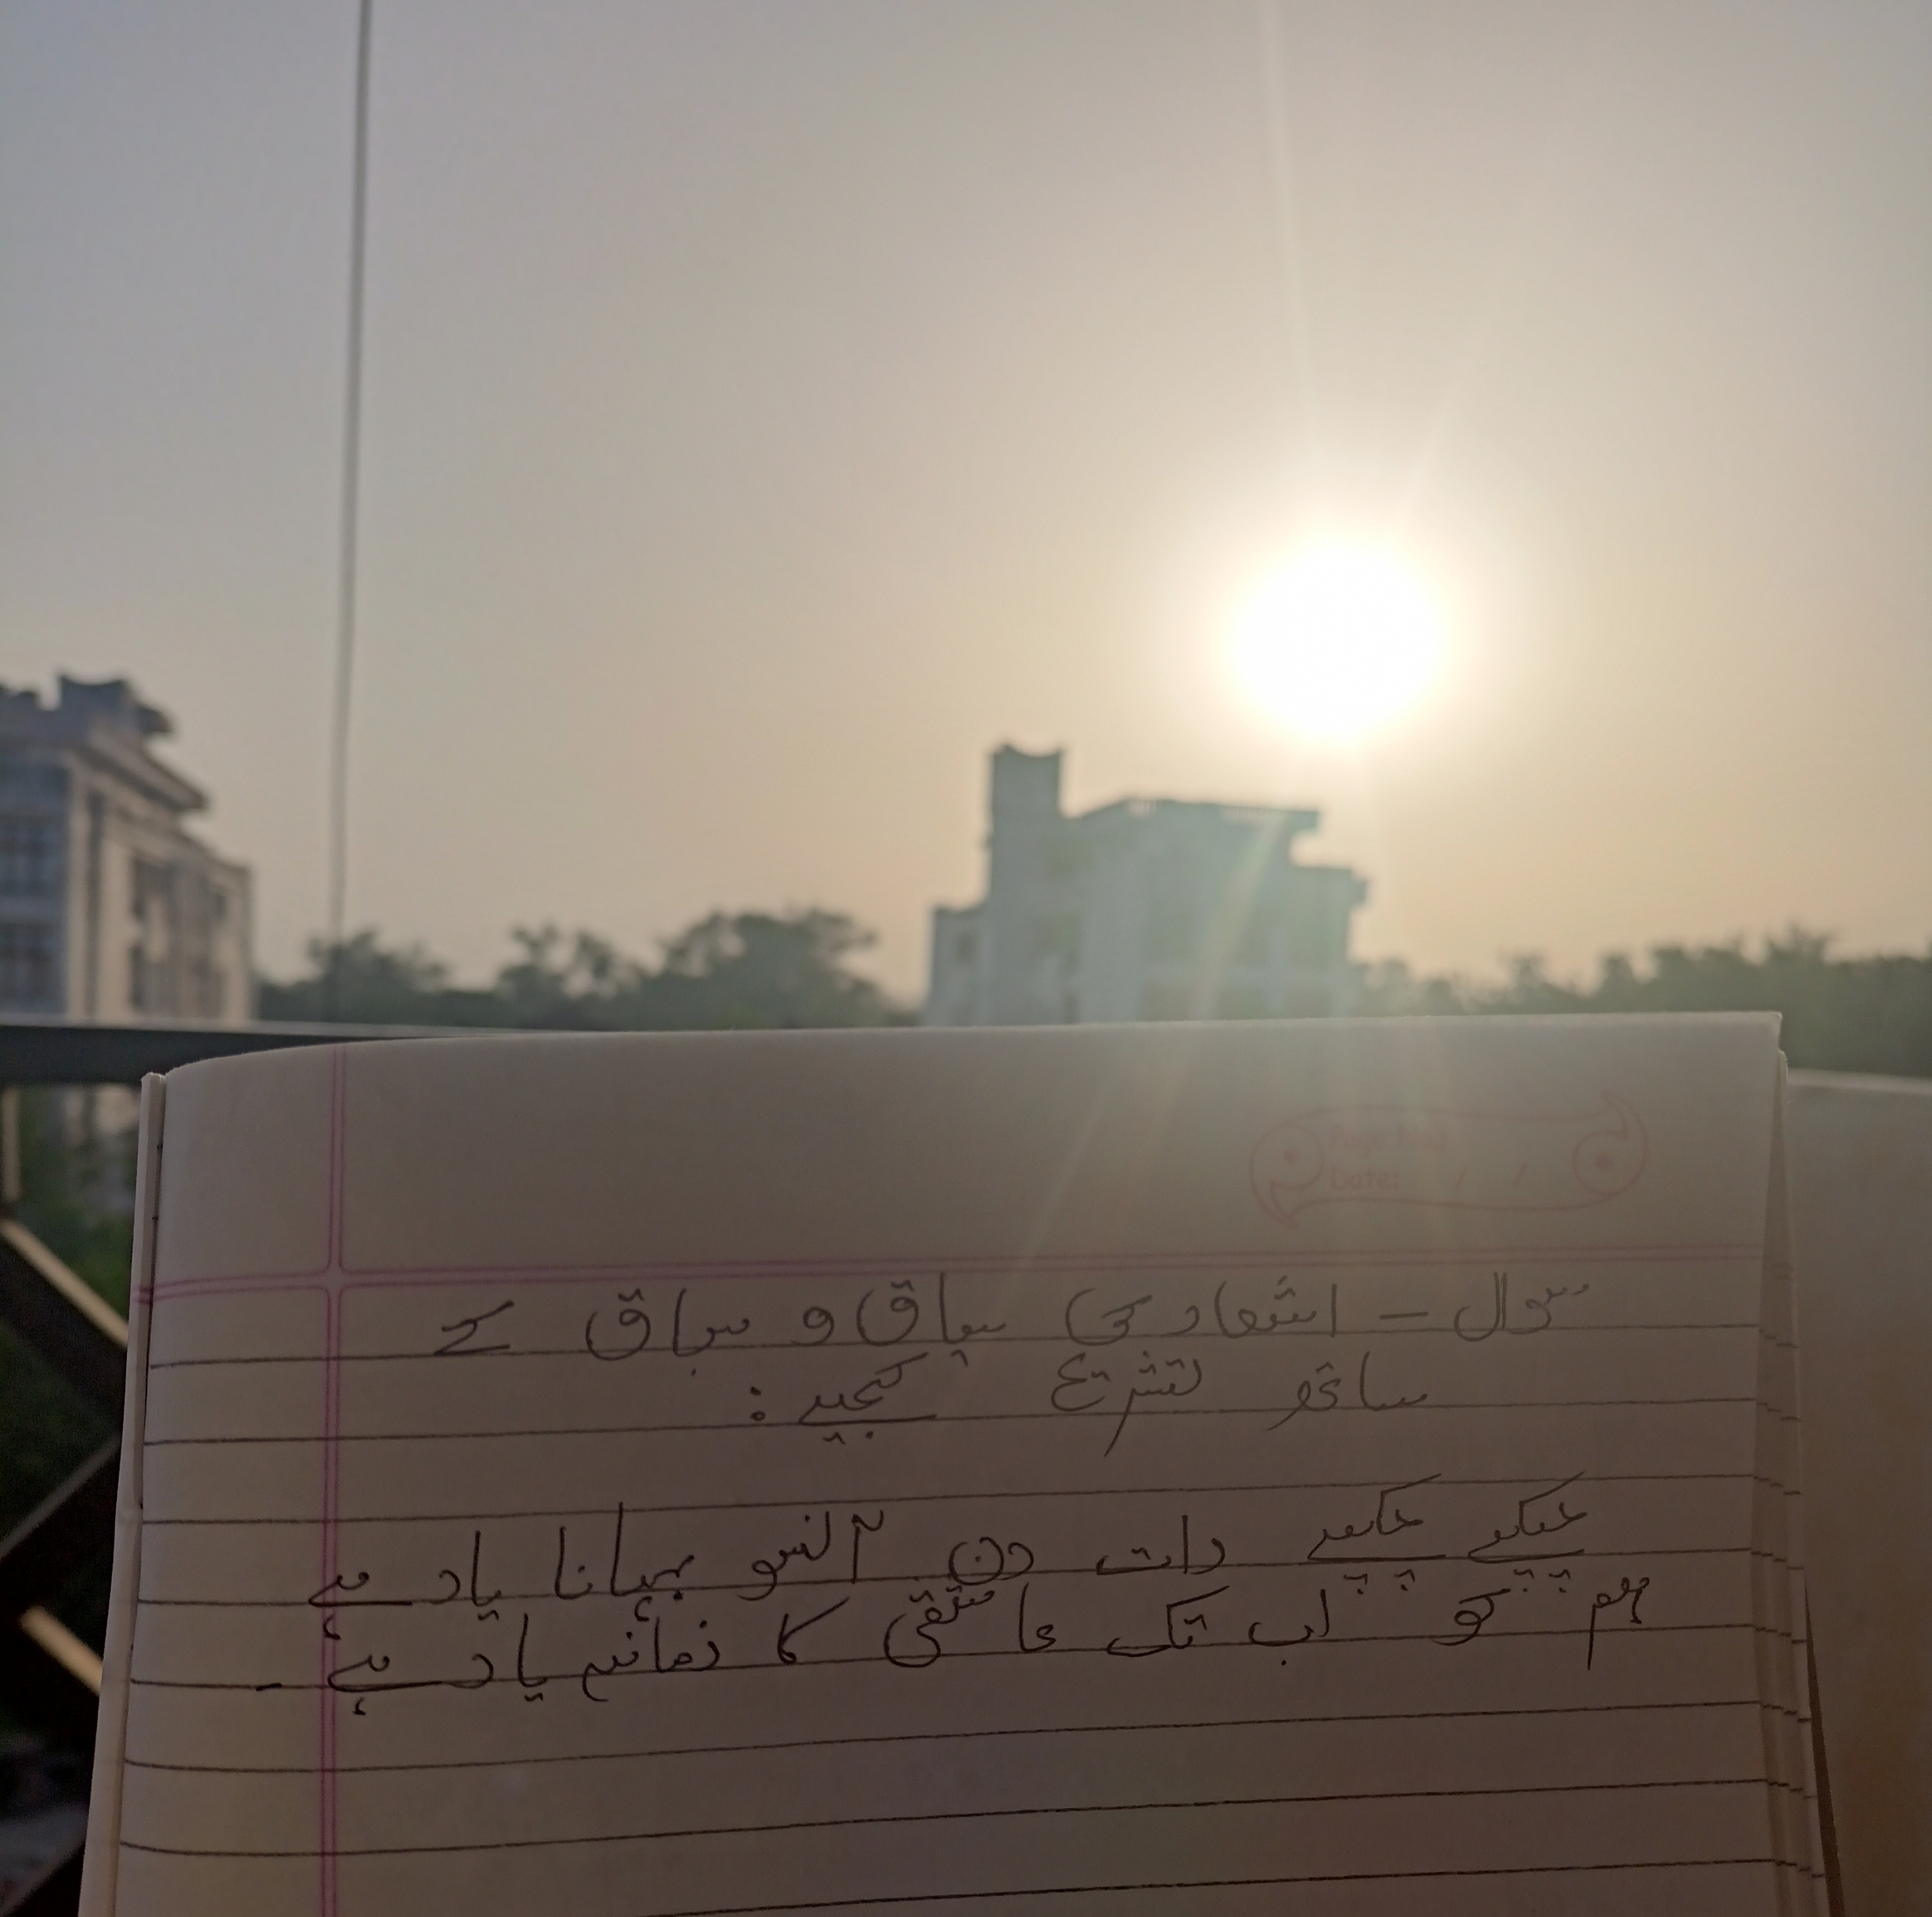 Page No.:
Date: / /
سوال - اشعار کی سیاق و سباق کے
ساتھ تشریح کیجیے:
چپکے چپکے رات دن آنسو بہانا یاد ہے
ہم کو اب تک عاشقی کا زمانہ یاد ہے-